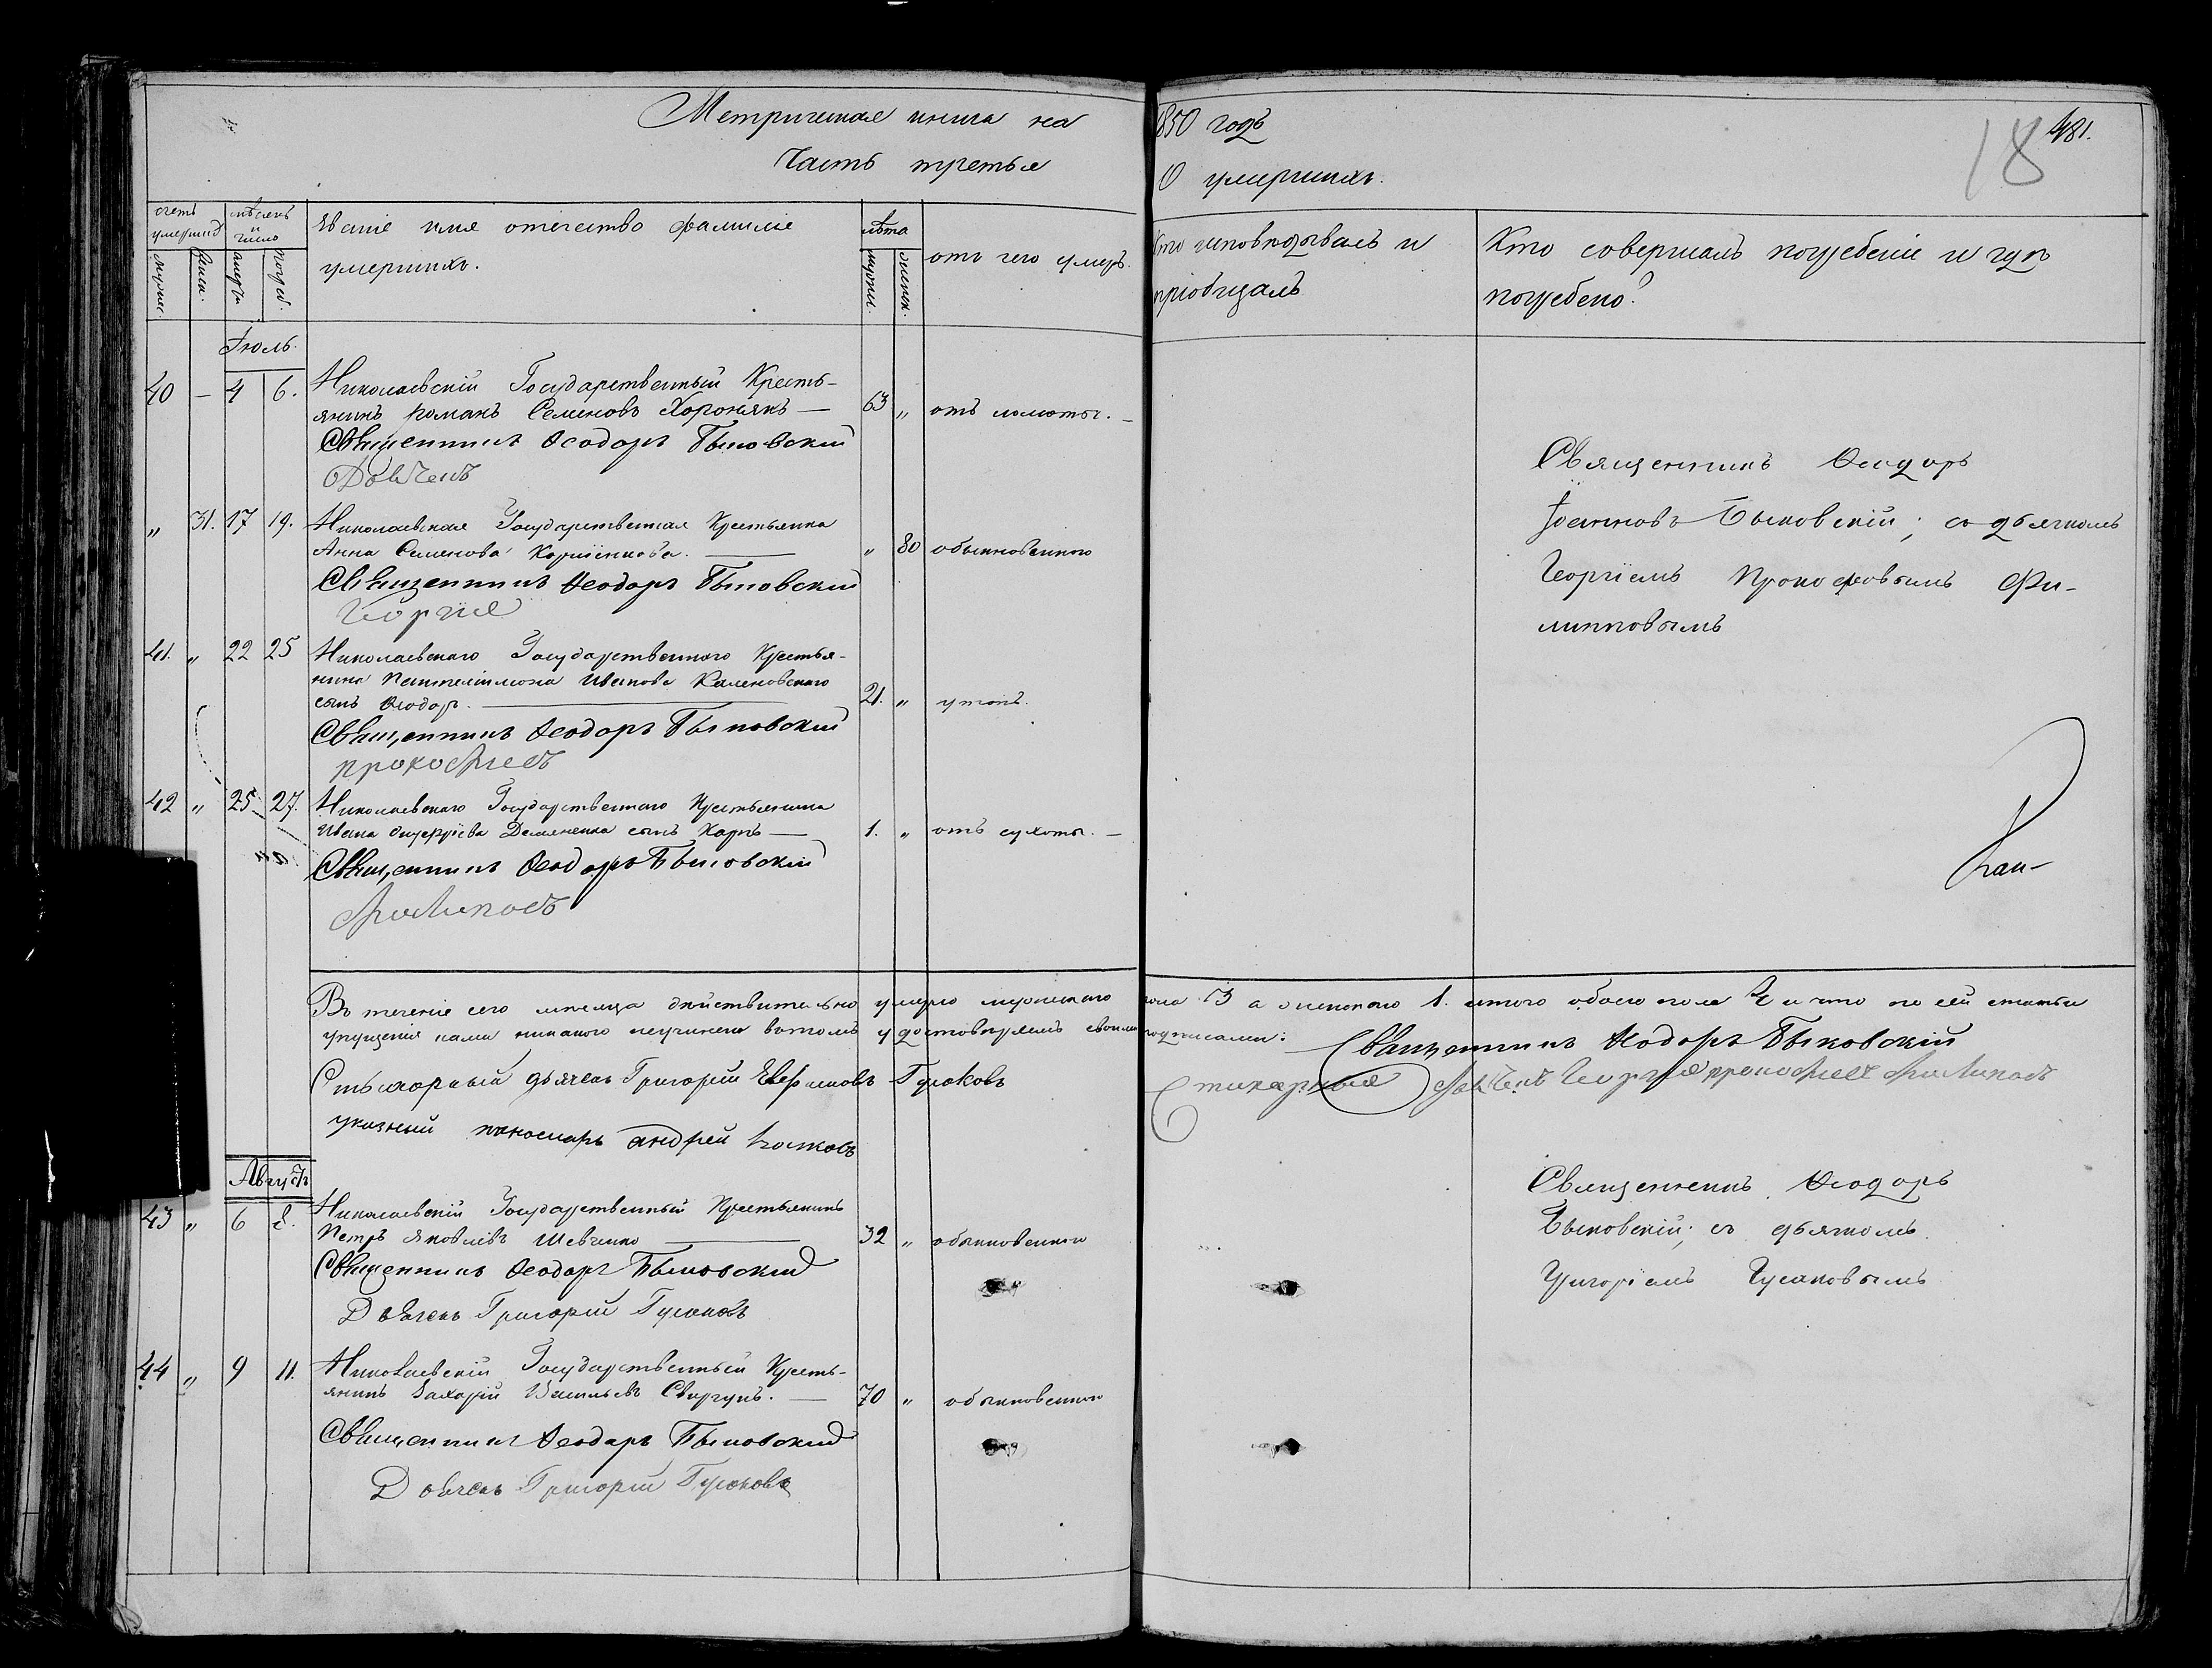 Метрическая книга на 1850 годъ
Часть третья О умершихъ.
481.
18
счетъ умершихъ
мужес. женск.
мѣсяцъ и число
смерти погреб.
Званіе имя отечество фамиліе
умершихъ.
лѣта
мужск. женск.
отъ чего умеръ.
Кто исповѣдывалъ и
пріобщалъ
Кто совершалъ погребеніе и гдѣ
погребено?
Іюль.
40 — 4 6. Николаевскій Государственный Кресть-
янинъ Романъ Семеновъ Хороникъ — 63 „ отъ ломоты. —
Священникъ Ѳеодоръ Быковскій
Дьячекъ
„ 31. 17 19. Николаевская Государственная Крестьянка
Анна Семенова Корніенкова. — „ 80 обыкновенною
Священникъ Ѳеодоръ Быковскій
Георгие
41. „ 22 25 Николаевскаго Государственного Крестья-
нина Пантелимона Иванова Калиновскаго
сынъ Ѳеодоръ. — 21. „ утопъ.
Священникъ Ѳеодоръ Быковскій
прокофиевъ
42 „ 25 27. Николаевскаго Государственнаго Крестьянина
Ивана Демяненка сынъ Карпъ — 1. „ отъ сухоты. —
Священникъ Ѳеодоръ Быковскій
филиповъ
Священникъ Ѳеодоръ
Іоанновъ Быковскій; съ дьячкомъ
Георгіемъ Прокофовымъ Фи-
липповымъ
Въ теченіе сего мѣсяца дѣйствительно умерло мужескаго пола 3 а женскаго 1. итого обоего пола 4 и что по сей статьи
упущенія нами никакого неучинено вътомъ удостовѣряемъ своими подписами: Священникъ Ѳеодоръ Быковскій
Стихарный дьячекъ Григорій Гусаковъ Стихарный Дьячекъ Георгие прокофиевъ филиповъ
указный паномарь андрей
Августъ
43 „ 6 8. Николаевскій Государственный Крестьянинъ
Петръ Яковлевъ Шевченко — 32 „ обыкновенною
Священникъ Ѳеодоръ Быковскій
Дьячекъ Григорій Гусаковъ
Священникъ Ѳеодоръ
Быковскій; съ дьячкомъ
Григоріемъ Гусаковымъ
44 „ 9 11. Николаевскій Государственный Кресть-
янинъ Захарій Васильевъ Свиргунъ. — 70 „ обыкновенною
Священникъ Ѳеодоръ Быковскій
Дьячекъ Григорій Гусаковъ